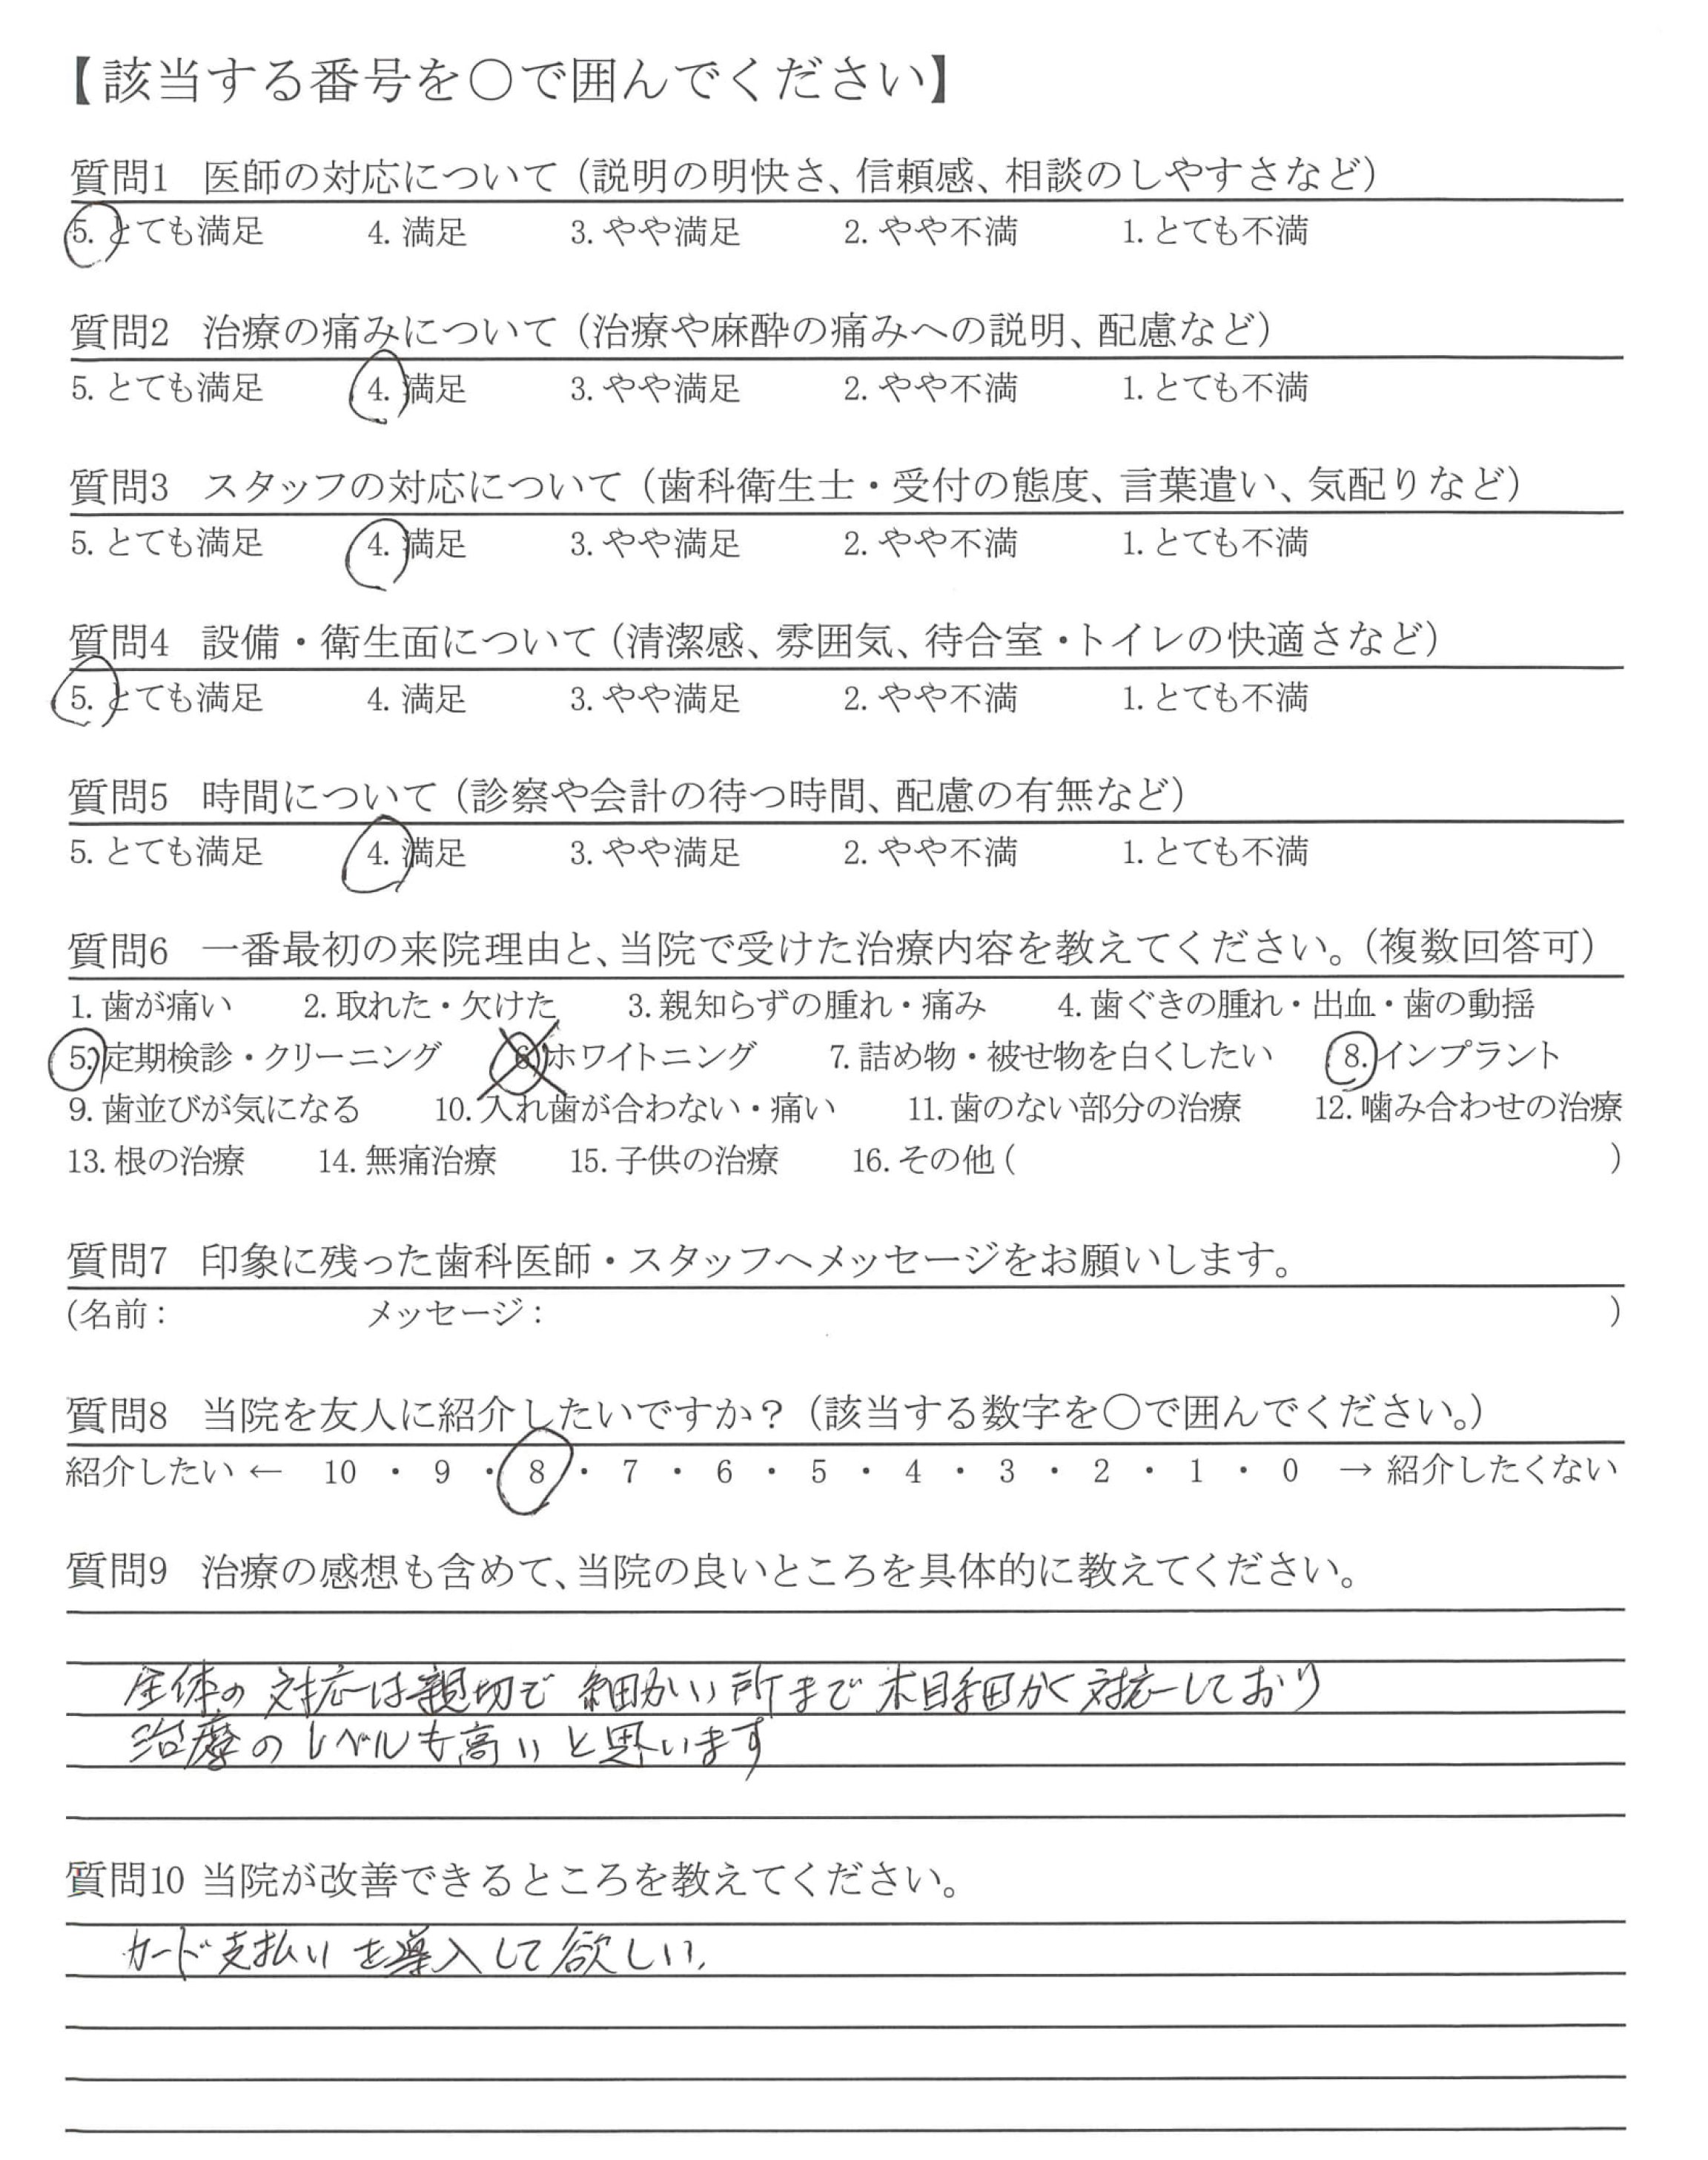 【該当する番号を○で囲んでください】
質問1 医師の対応について（説明の明快さ、信頼感、相談のしやすさなど）
5. とても満足 4. 満足 3. やや満足 2. やや不満 1. とても不満
質問2 治療の痛みについて（治療や麻酔の痛みへの説明、配慮など）
5. とても満足 4. 満足 3. やや満足 2. やや不満 1. とても不満
質問3 スタッフの対応について（歯科衛生士・受付の態度、言葉遣い、気配りなど）
5. とても満足 4. 満足 3. やや満足 2. やや不満 1. とても不満
質問4 設備・衛生面について（清潔感、雰囲気、待合室・トイレの快適さなど）
5. とても満足 4. 満足 3. やや満足 2. やや不満 1. とても不満
質問5 時間について（診察や会計の待つ時間、配慮の有無など）
5. とても満足 4. 満足 3. やや満足 2. やや不満 1. とても不満
質問6 一番最初の来院理由と、当院で受けた治療内容を教えてください。（複数回答可）
1. 歯が痛い 2. 取れた・欠けた 3. 親知らずの腫れ・痛み 4. 歯ぐきの腫れ・出血・歯の動揺
5. 定期検診・クリーニング 6. ホワイトニング 7. 詰め物・被せ物を白くしたい 8. インプラント
9. 歯並びが気になる 10. 入れ歯が合わない・痛い 11. 歯のない部分の治療 12. 噛み合わせの治療
13. 根の治療 14. 無痛治療 15. 子供の治療 16. その他 ( )
質問7 印象に残った歯科医師・スタッフへメッセージをお願いします。
(名前： メッセージ： )
質問8 当院を友人に紹介したいですか？（該当する数字を○で囲んでください。）
紹介したい ← 10 ・ 9 ・ 8 ・ 7 ・ 6 ・ 5 ・ 4 ・ 3 ・ 2 ・ 1 ・ 0 → 紹介したくない
質問9 治療の感想も含めて、当院の良いところを具体的に教えてください。
全体の対応は親切で細かい所まで木目細かく対応しており
治療のレベルも高いと思います
質問10 当院が改善できるところを教えてください。
カード支払いを導入して欲しい.